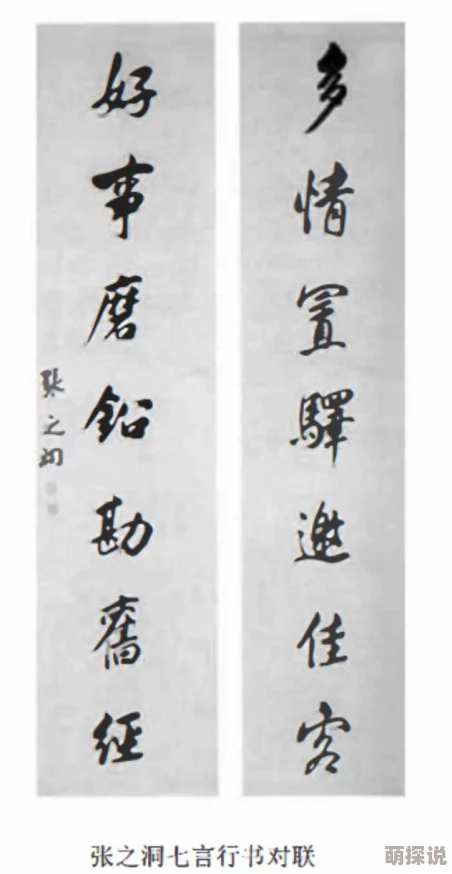 多情置驛邀佳客
好事磨鉛勘舊經
張之洞
张之洞七言行书对联
萌探说